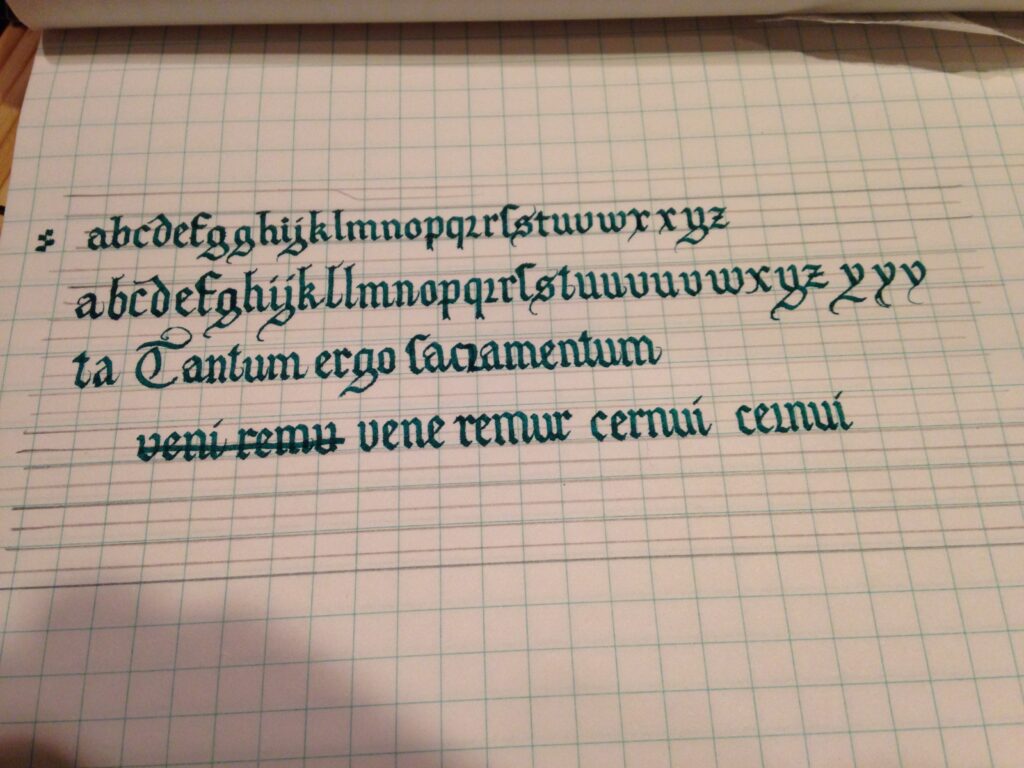 abcdefgghijklmnopqꝛrſstuvwxxyz
abcdefghijkllmnopqꝛrſstuuvuvwxyz yyy
ta Tantum ergo ſacꝛamentum
veni remu vene remur cernui ceꝛnui